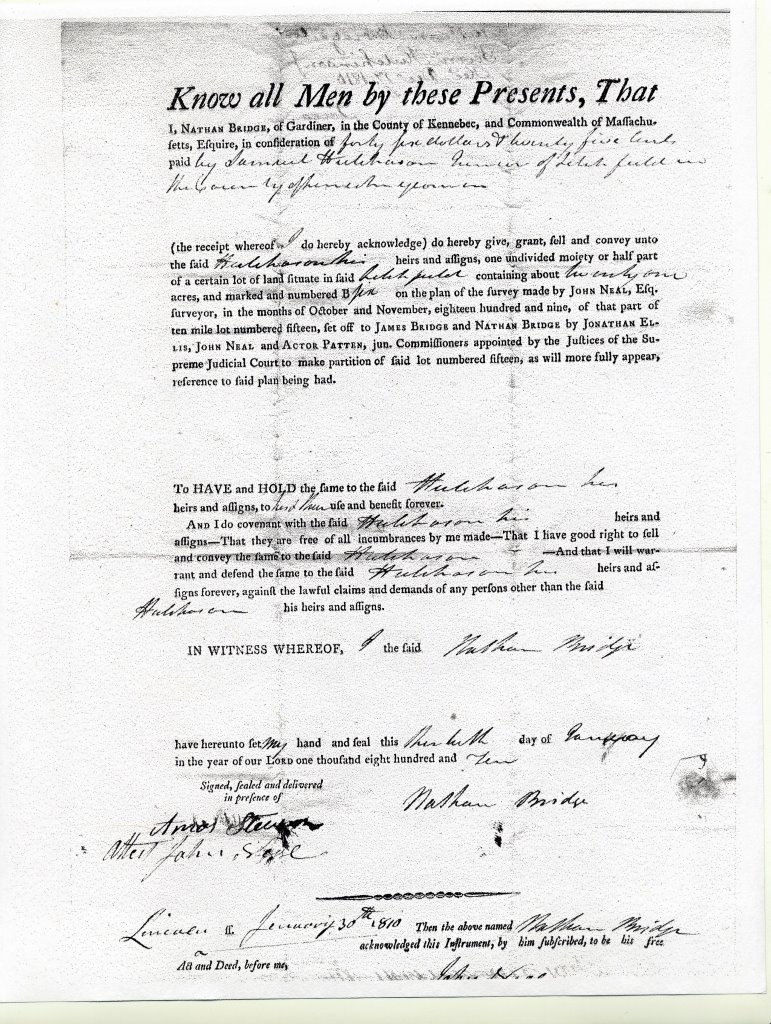 Know all Men by these Presents, That
I, NATHAN BRIDGE, of Gardiner, in the County of Kennebec, and Commonwealth of Maſſachu-
ſetts, Eſquire, in conſideration of forty six dollars & twenty five Cents
paid by Samuel Hutchason Junior of Litchfield in
the County of yeoman
(the receipt whereof I do hereby acknowledge) do hereby give, grant, ſell and convey unto
the ſaid Hutchason his heirs and aſſigns, one undivided moiety or half part
of a certain lot of land ſituate in ſaid Litchfield containing about twenty one
acres, and marked and numbered B ſix on the plan of the ſurvey made by JOHN NEAL, Eſq.
ſurveyor, in the months of October and November, eighteen hundred and nine, of that part of
ten mile lot numbered fifteen, ſet off to JAMES BRIDGE and NATHAN BRIDGE by JONATHAN EL-
LIS, JOHN NEAL and ACTOR PATTEN, jun. Commiſſioners appointed by the Juſtices of the Su-
preme Judicial Court to make partition of ſaid lot numbered fifteen, as will more fully appear,
reference to ſaid plan being had.
To HAVE and HOLD the ſame to the ſaid Hutchason his
heirs and aſſigns, to his & their uſe and benefit forever.
AND I do covenant with the ſaid Hutchason his heirs and
aſſigns—That they are free of all incumbrances by me made—That I have good right to ſell
and convey the ſame to the ſaid Hutchason —And that I will war-
rant and defend the ſame to the ſaid Hutchason his heirs and aſ-
ſigns forever, againſt the lawful claims and demands of any perſons other than the ſaid
Hutchason his heirs and aſſigns.
IN WITNESS WHEREOF, I the ſaid Nathan Bridge
have hereunto ſet my hand and ſeal this day of January
in the year of our LORD one thouſand eight hundred and Ten
Signed, ſealed and delivered
in preſence of
Nathan Bridge
Amos
Attest John
Lincoln ſſ. Jenuary 30th 1810 Then the above named Nathan Bridge
acknowledged this Inſtrument, by him ſubſcribed, to be his free
Act and Deed, before me,
John